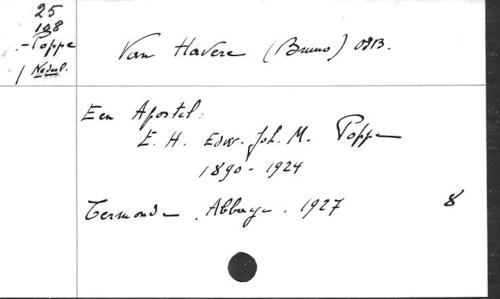 25
108
-Poppe
/ Nedul.
Van Havere (Bruno) OSB.
Een Apostel:
E. H. Edw. Joh. M. Poppe
1890 - 1924
Termonde, Abbaye. 1927 8